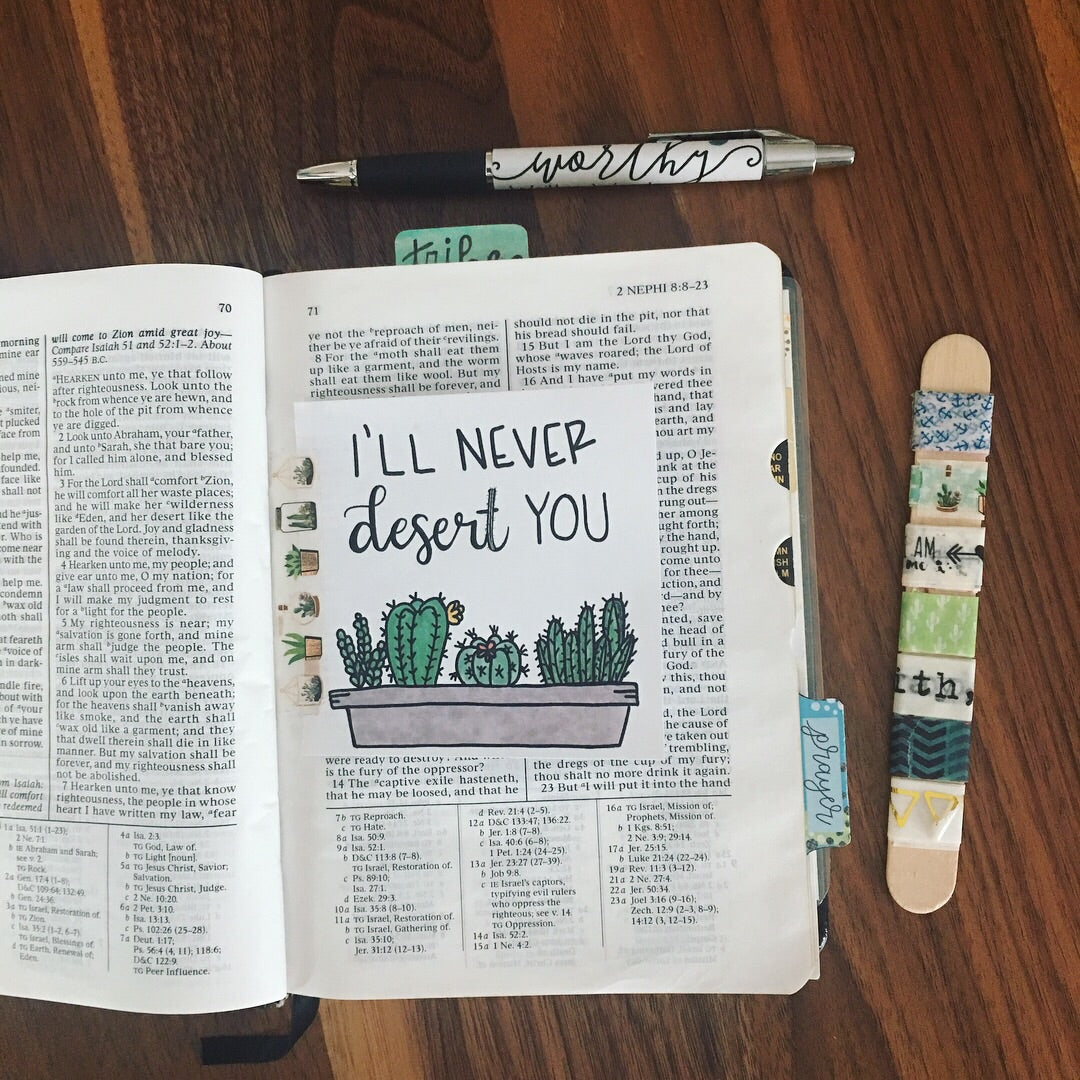 worthy
tribe
70
will come to Zion amid great joy—
Compare Isaiah 51 and 52:1–2. About
559–545 B.C.
aHEARKEN unto me, ye that follow
after righteousness. Look unto the
brock from whence ye are hewn, and
to the hole of the pit from whence
ye are digged.
2 Look unto Abraham, your afather,
and unto bSarah, she that bare you;
for I called him alone, and blessed
him.
3 For the Lord shall acomfort bZion,
he will comfort all her waste places;
and he will make her cwilderness
like dEden, and her desert like the
garden of the Lord. Joy and gladness
shall be found therein, thanksgiv-
ing and the voice of melody.
4 Hearken unto me, my people; and
give ear unto me, O my nation; for
a alaw shall proceed from me, and
I will make my judgment to rest
for a blight for the people.
5 My righteousness is near; my
asalvation is gone forth, and mine
arm shall bjudge the people. The
cisles shall wait upon me, and on
mine arm shall they trust.
6 Lift up your eyes to the aheavens,
and look upon the earth beneath;
for the heavens shall bvanish away
like smoke, and the earth shall
cwax old like a garment; and they
that dwell therein shall die in like
manner. But my salvation shall be
forever, and my righteousness shall
not be abolished.
7 Hearken unto me, ye that know
righteousness, the people in whose
heart I have written my law, afear
1a Isa. 51:1 (1–23);
2 Ne. 7:1.
b IE Abraham and Sarah;
see v. 2.
TG Rock.
2a Gen. 17:4 (1–8);
D&C 109:64; 132:49.
b Gen. 24:36.
3a TG Israel, Restoration of.
b TG Zion.
c Isa. 35:2 (1–2, 6–7).
TG Israel, Blessings of.
d TG Earth, Renewal of;
Eden.
4a Isa. 2:3.
TG God, Law of.
b TG Light [noun].
5a TG Jesus Christ, Savior;
Salvation.
b TG Jesus Christ, Judge.
c 2 Ne. 10:20.
6a 2 Pet. 3:10.
b Isa. 13:13.
c Ps. 102:26 (25–28).
7a Deut. 1:17;
Ps. 56:4 (4, 11); 118:6;
D&C 122:9.
TG Peer Influence.
71
2 NEPHI 8:8–23
ye not the breproach of men, nei-
ther be ye afraid of their crevilings.
8 For the amoth shall eat them
up like a garment, and the worm
shall eat them like wool. But my
righteousness shall be forever, and
I'LL NEVER
desert YOU
were ready to destroy? And
is the fury of the oppressor?
14 The acaptive exile hasteneth,
that he may be loosed, and that he
should not die in the pit, nor that
his bread should fail.
15 But I am the Lord thy God,
whose awaves roared; the Lord of
Hosts is my name.
16 And I have aput my words in
the dregs of the cup of my fury;
thou shalt no more drink it again.
23 But aI will put it into the hand
7b TG Reproach.
c TG Hate.
8a Isa. 50:9.
9a Isa. 52:1.
b D&C 113:8 (7–8).
TG Israel, Restoration of.
c Ps. 89:10;
Isa. 27:1.
d Ezek. 29:3.
10a Isa. 35:8 (8–10).
11a TG Israel, Restoration of.
b TG Israel, Gathering of.
c Isa. 35:10;
Jer. 31:12 (12–13).
d Rev. 21:4 (2–5).
12a D&C 133:47; 136:22.
b Jer. 1:8 (7–8).
c Isa. 40:6 (6–8);
1 Pet. 1:24 (24–25).
13a Jer. 23:27 (27–39).
b Job 9:8.
c IE Israel's captors,
typifying evil rulers
who oppress the
righteous; see v. 14.
TG Oppression.
14a Isa. 52:2.
15a 1 Ne. 4:2.
16a TG Israel, Mission of;
Prophets, Mission of.
b 1 Kgs. 8:51;
2 Ne. 3:9; 29:14.
17a Jer. 25:15.
b Luke 21:24 (22–24).
19a Rev. 11:3 (3–12).
21a 2 Ne. 27:4.
22a Jer. 50:34.
23a Joel 3:16 (9–16);
Zech. 12:9 (2–3, 8–9);
14:12 (3, 12–15).
prayer
AM
ith,